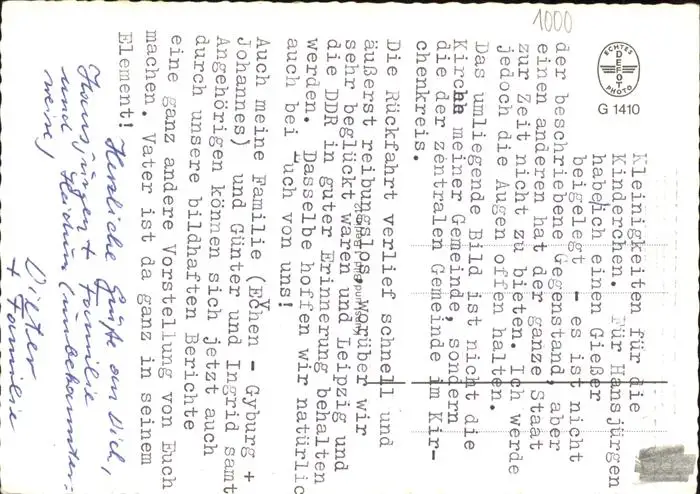 1000
ECHTES
DEFOT
PHOTO
G 1410
Kleinigkeiten für die
Kinderchen. Für Hansjürgen
habe ich einen Gießer
beigelegt - es ist nicht
der beschriebene Gegenstand, aber
einen anderen hat der ganze Staat
zur Zeit nicht zu bieten. Ich werde
jedoch die Augen offen halten.
Das umliegende Bild ist nicht die
Kirche meiner Gemeinde, sondern
die der zentralen Gemeinde im Kir-
chenkreis.
Die Rückfahrt verlief schnell und
äußerst reibungslos, worüber wir
sehr beglückt waren und Leipzig und
die DDR in guter Erinnerung behalten
werden. Dasselbe hoffen wir natürlich
auch bei Euch von uns!
Auch meine Familie (Evchen - Gyburg +
Johannes) und Günter und Ingrid samt
Angehörigen können sich jetzt auch
durch unsere bildhaften Berichte
eine ganz andere Vorstellung von Euch
machen. Vater ist da ganz in seinem
Element!
Herzliche Grüße an Dich,
Hansjürgen + Familie
und Heidrun (unbekannter-
weise)
Dieter
+ Familie